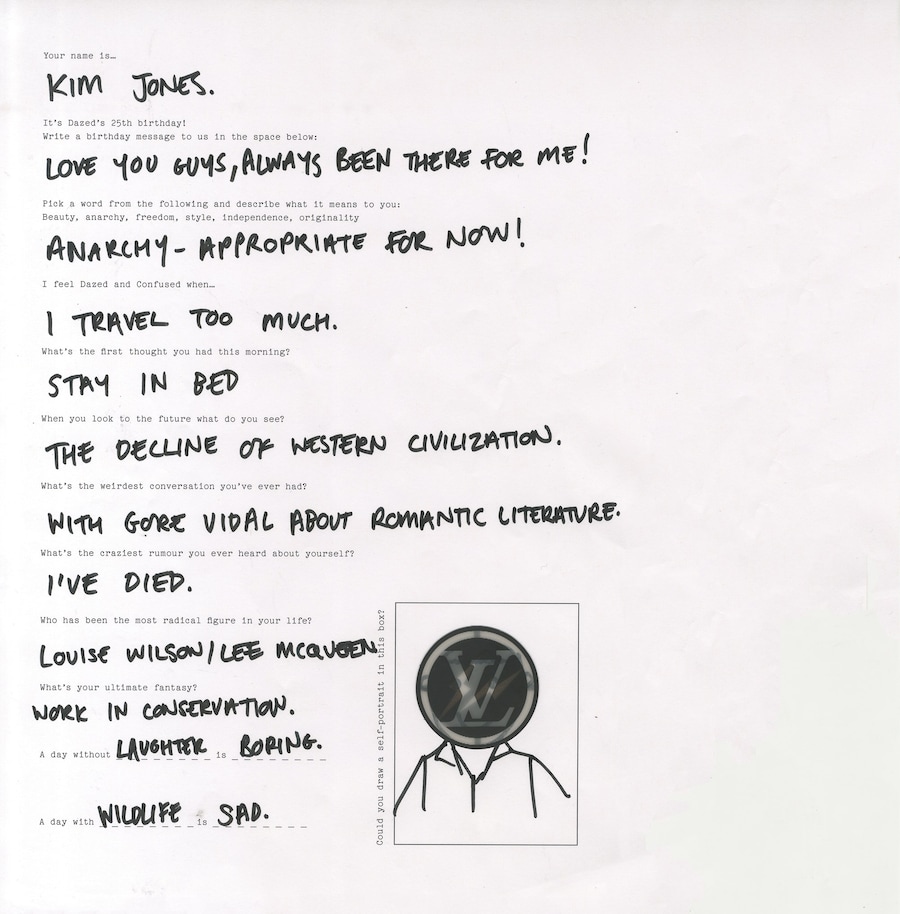 Your name is…
KIM JONES.
It's Dazed's 25th birthday!
Write a birthday message to us in the space below:
LOVE YOU GUYS, ALWAYS BEEN THERE FOR ME!
Pick a word from the following and describe what it means to you:
Beauty, anarchy, freedom, style, independence, originality
ANARCHY - APPROPRIATE FOR NOW!
I feel Dazed and Confused when…
I TRAVEL TOO MUCH.
What's the first thought you had this morning?
STAY IN BED
When you look to the future what do you see?
THE DECLINE OF WESTERN CIVILIZATION.
What's the weirdest conversation you've ever had?
WITH GORE VIDAL ABOUT ROMANTIC LITERATURE.
What's the craziest rumour you ever heard about yourself?
I'VE DIED.
Who has been the most radical figure in your life?
LOUISE WILSON/LEE MCQUEEN
What's your ultimate fantasy?
WORK IN CONSERVATION.
A day without LAUGHTER is BORING.
A day with WILDLIFE is SAD.
Could you draw a self-portrait in this box?
LV